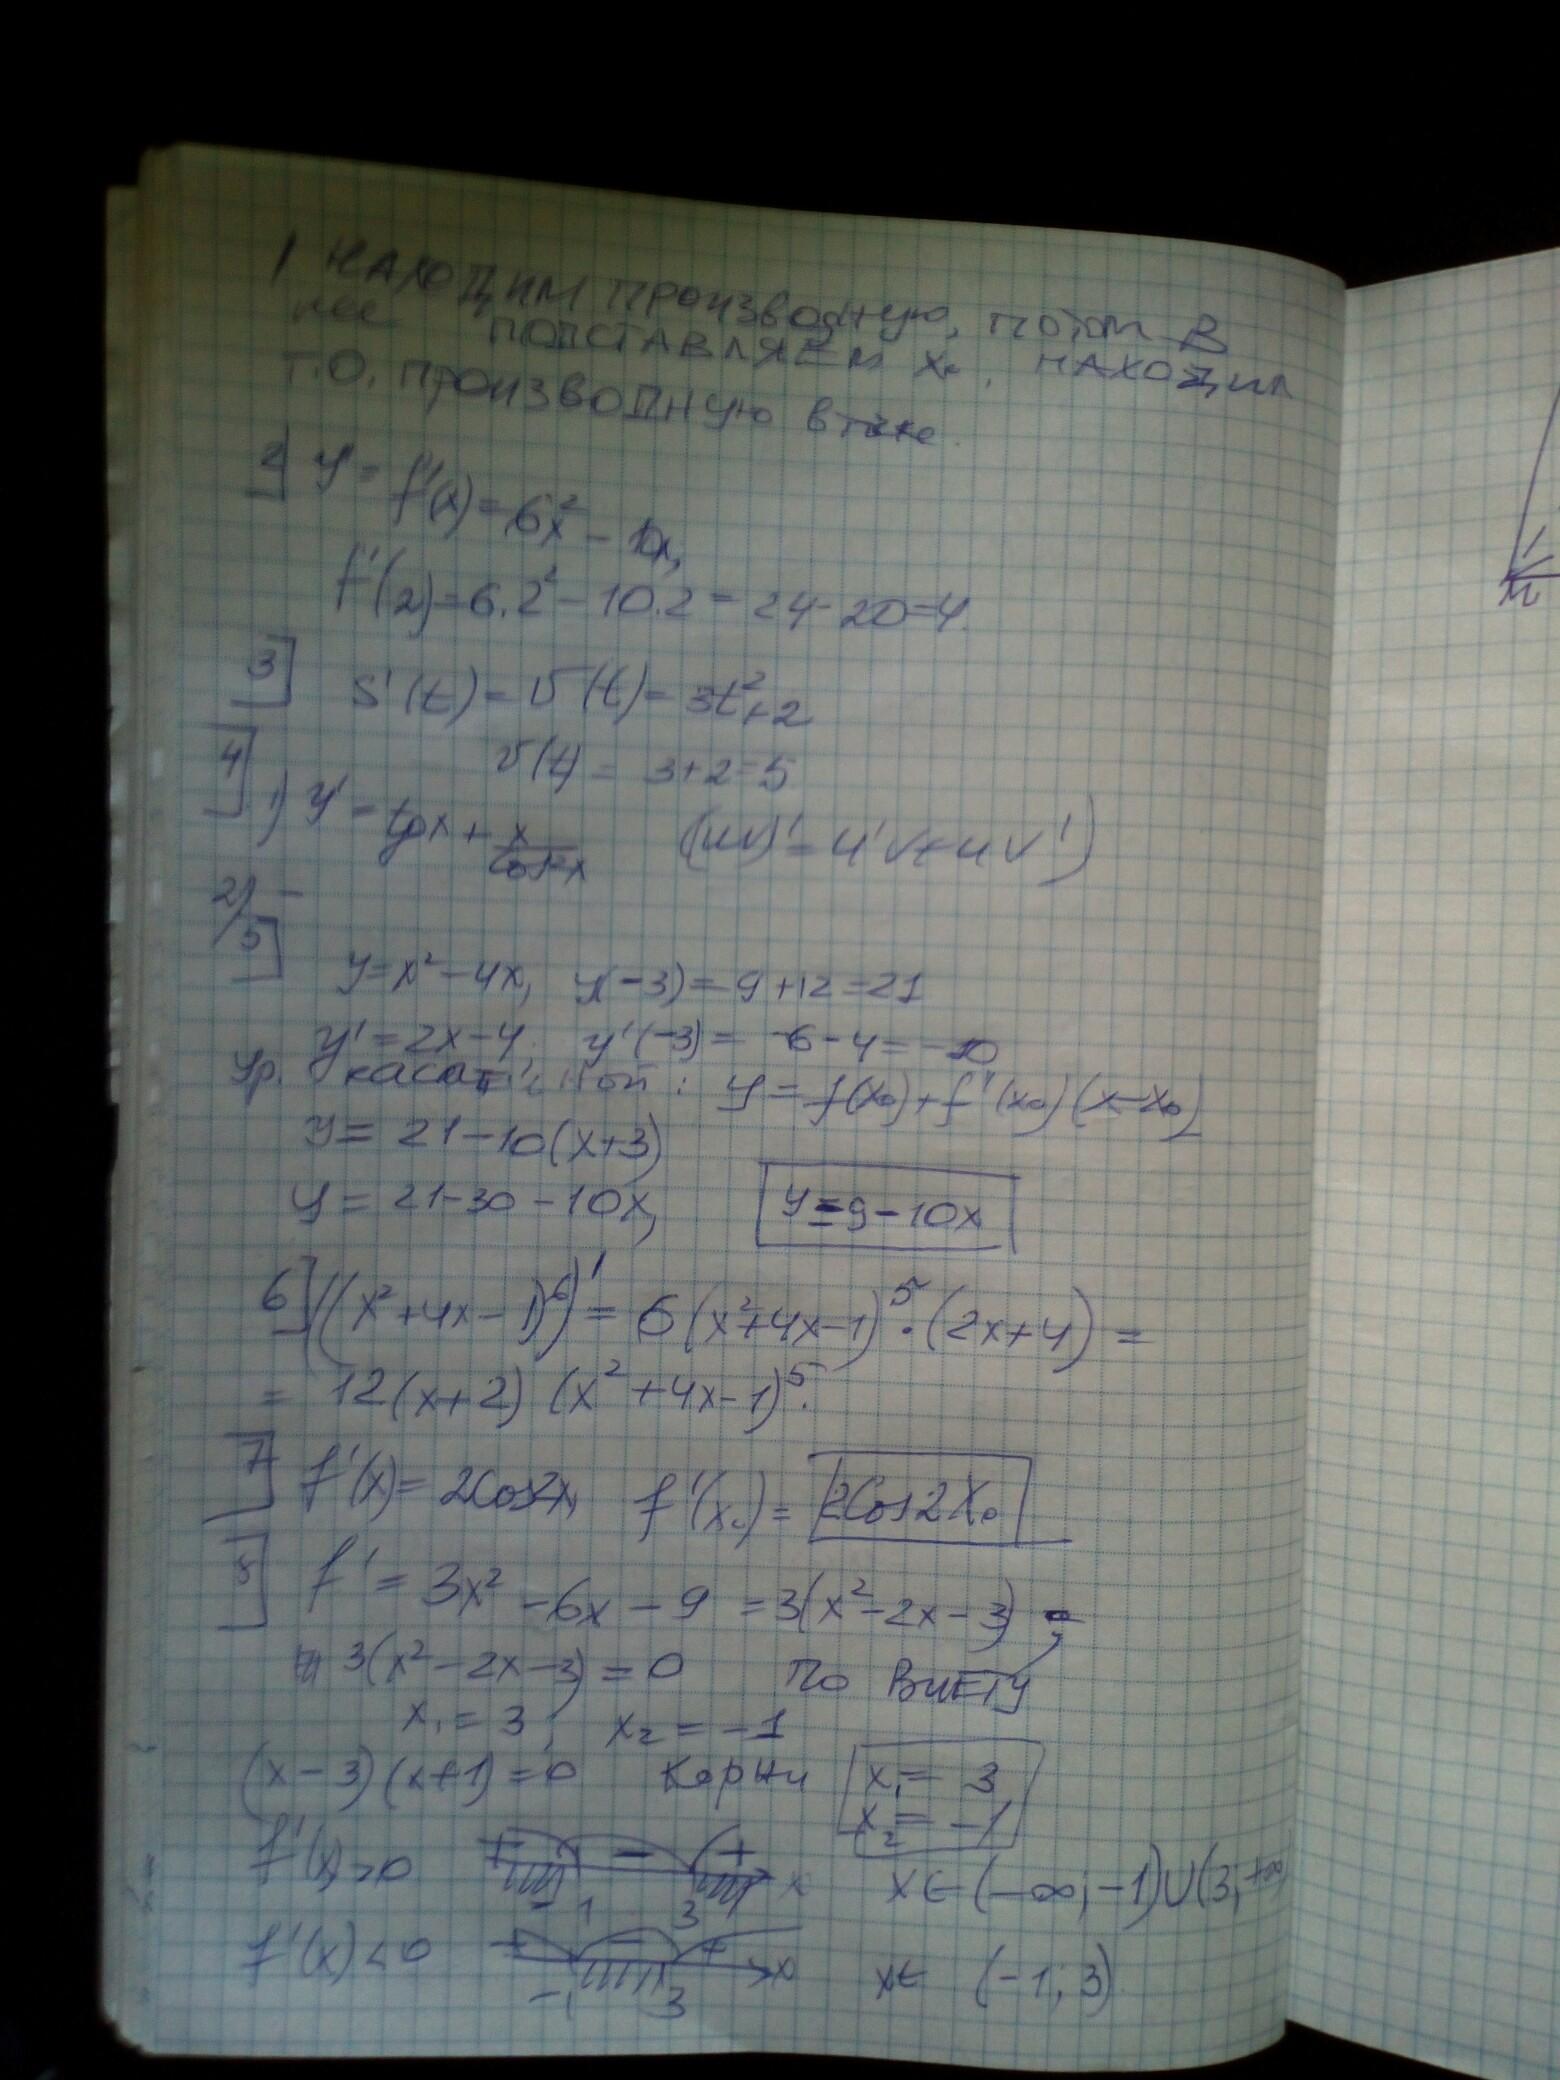 1 НАХОДИМ ПРОИЗВОДНУЮ, ПОТОМ В
нее ПОДСТАВЛЯЕМ x₀, НАХОДИМ
Т.О. ПРОИЗВОДНУЮ в точке.
2] y' = f'(x) = 6x² - 10x,
f'(2) = 6·2² - 10·2 = 24 - 20 = 4.
3] S'(t) = v(t) = 3t² + 2
v(t) = 3 + 2 = 5
4] 1) y' = tgx + x/cos²x (uv)' = u'v + uv')
2) -
5] y = x² - 4x, y(-3) = 9 + 12 = 21
y' = 2x - 4, y'(-3) = -6 - 4 = -10
Ур. касательной: y = f(x₀) + f'(x₀)(x - x₀)
y = 21 - 10(x + 3)
y = 21 - 30 - 10x, y = -9 - 10x
6] ((x² + 4x - 1)⁶)' = 6(x² + 4x - 1)⁵ · (2x + 4) =
= 12(x + 2)(x² + 4x - 1)⁵.
7] f'(x) = 2Cos2x, f'(x₀) = 2Cos2x₀
8] f' = 3x² - 6x - 9 = 3(x² - 2x - 3)
3(x² - 2x - 3) = 0 По ВИЕТУ
x₁ = 3; x₂ = -1
(x - 3)(x + 1) = 0 Корни x₁ = 3
x₂ = -1
f'(x) > 0 + - + x x ∈ (-∞; -1) U (3; +∞
-1 3
f'(x) < 0 + - + x x ∈ (-1; 3)
-1 3
M